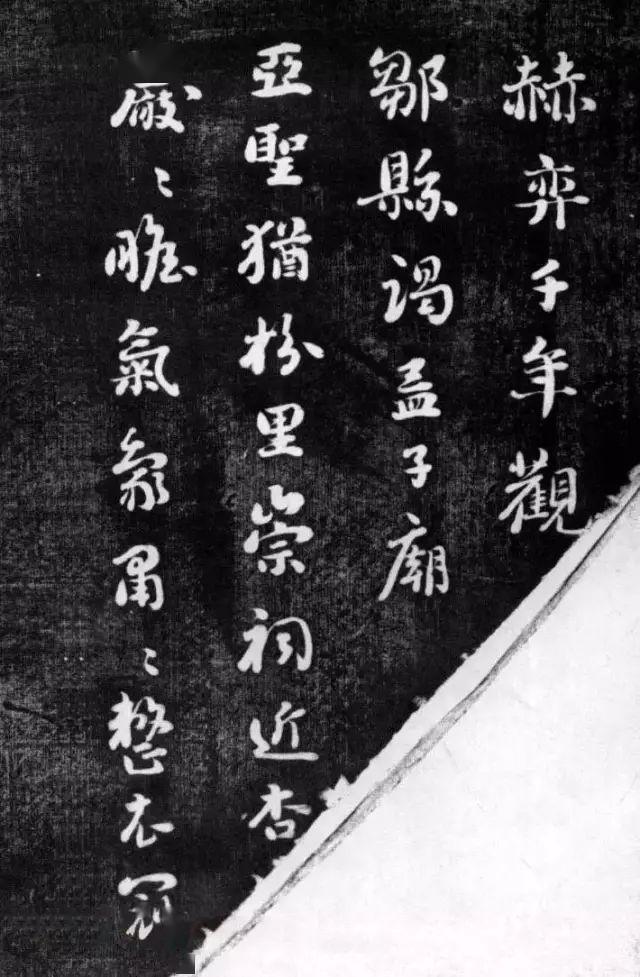 赫弈千年觀
鄒縣謁孟子廟
亞聖猶枌里崇祠近杏
巖〻瞻氣象肅〻整衣冠